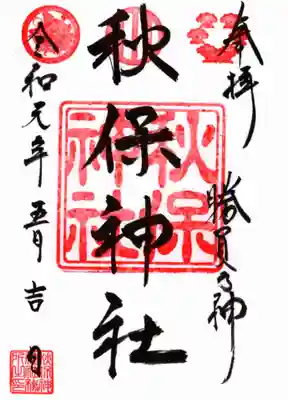 奉拝
勝負の神
秋保神社
秋保
神社
令和元年五月吉日